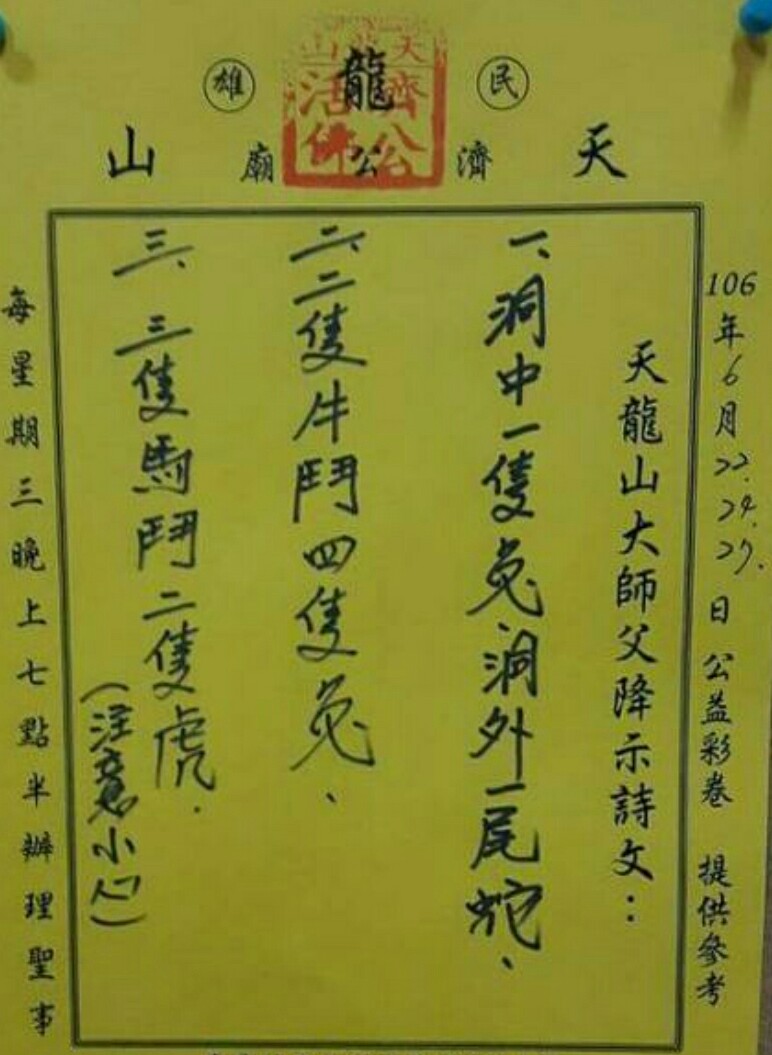 民 雄
天 龍 山
濟公廟
天龍山
濟公
活佛
106年6月22.24.27.日 公益彩卷 提供參考
天龍山大師父降示詩文：
一、洞中一隻兔、洞外一尾蛇、
二、二隻牛鬥四隻兔、
三、三隻馬鬥二隻虎．
（注意小心）
每星期三晚上七點半辦理聖事